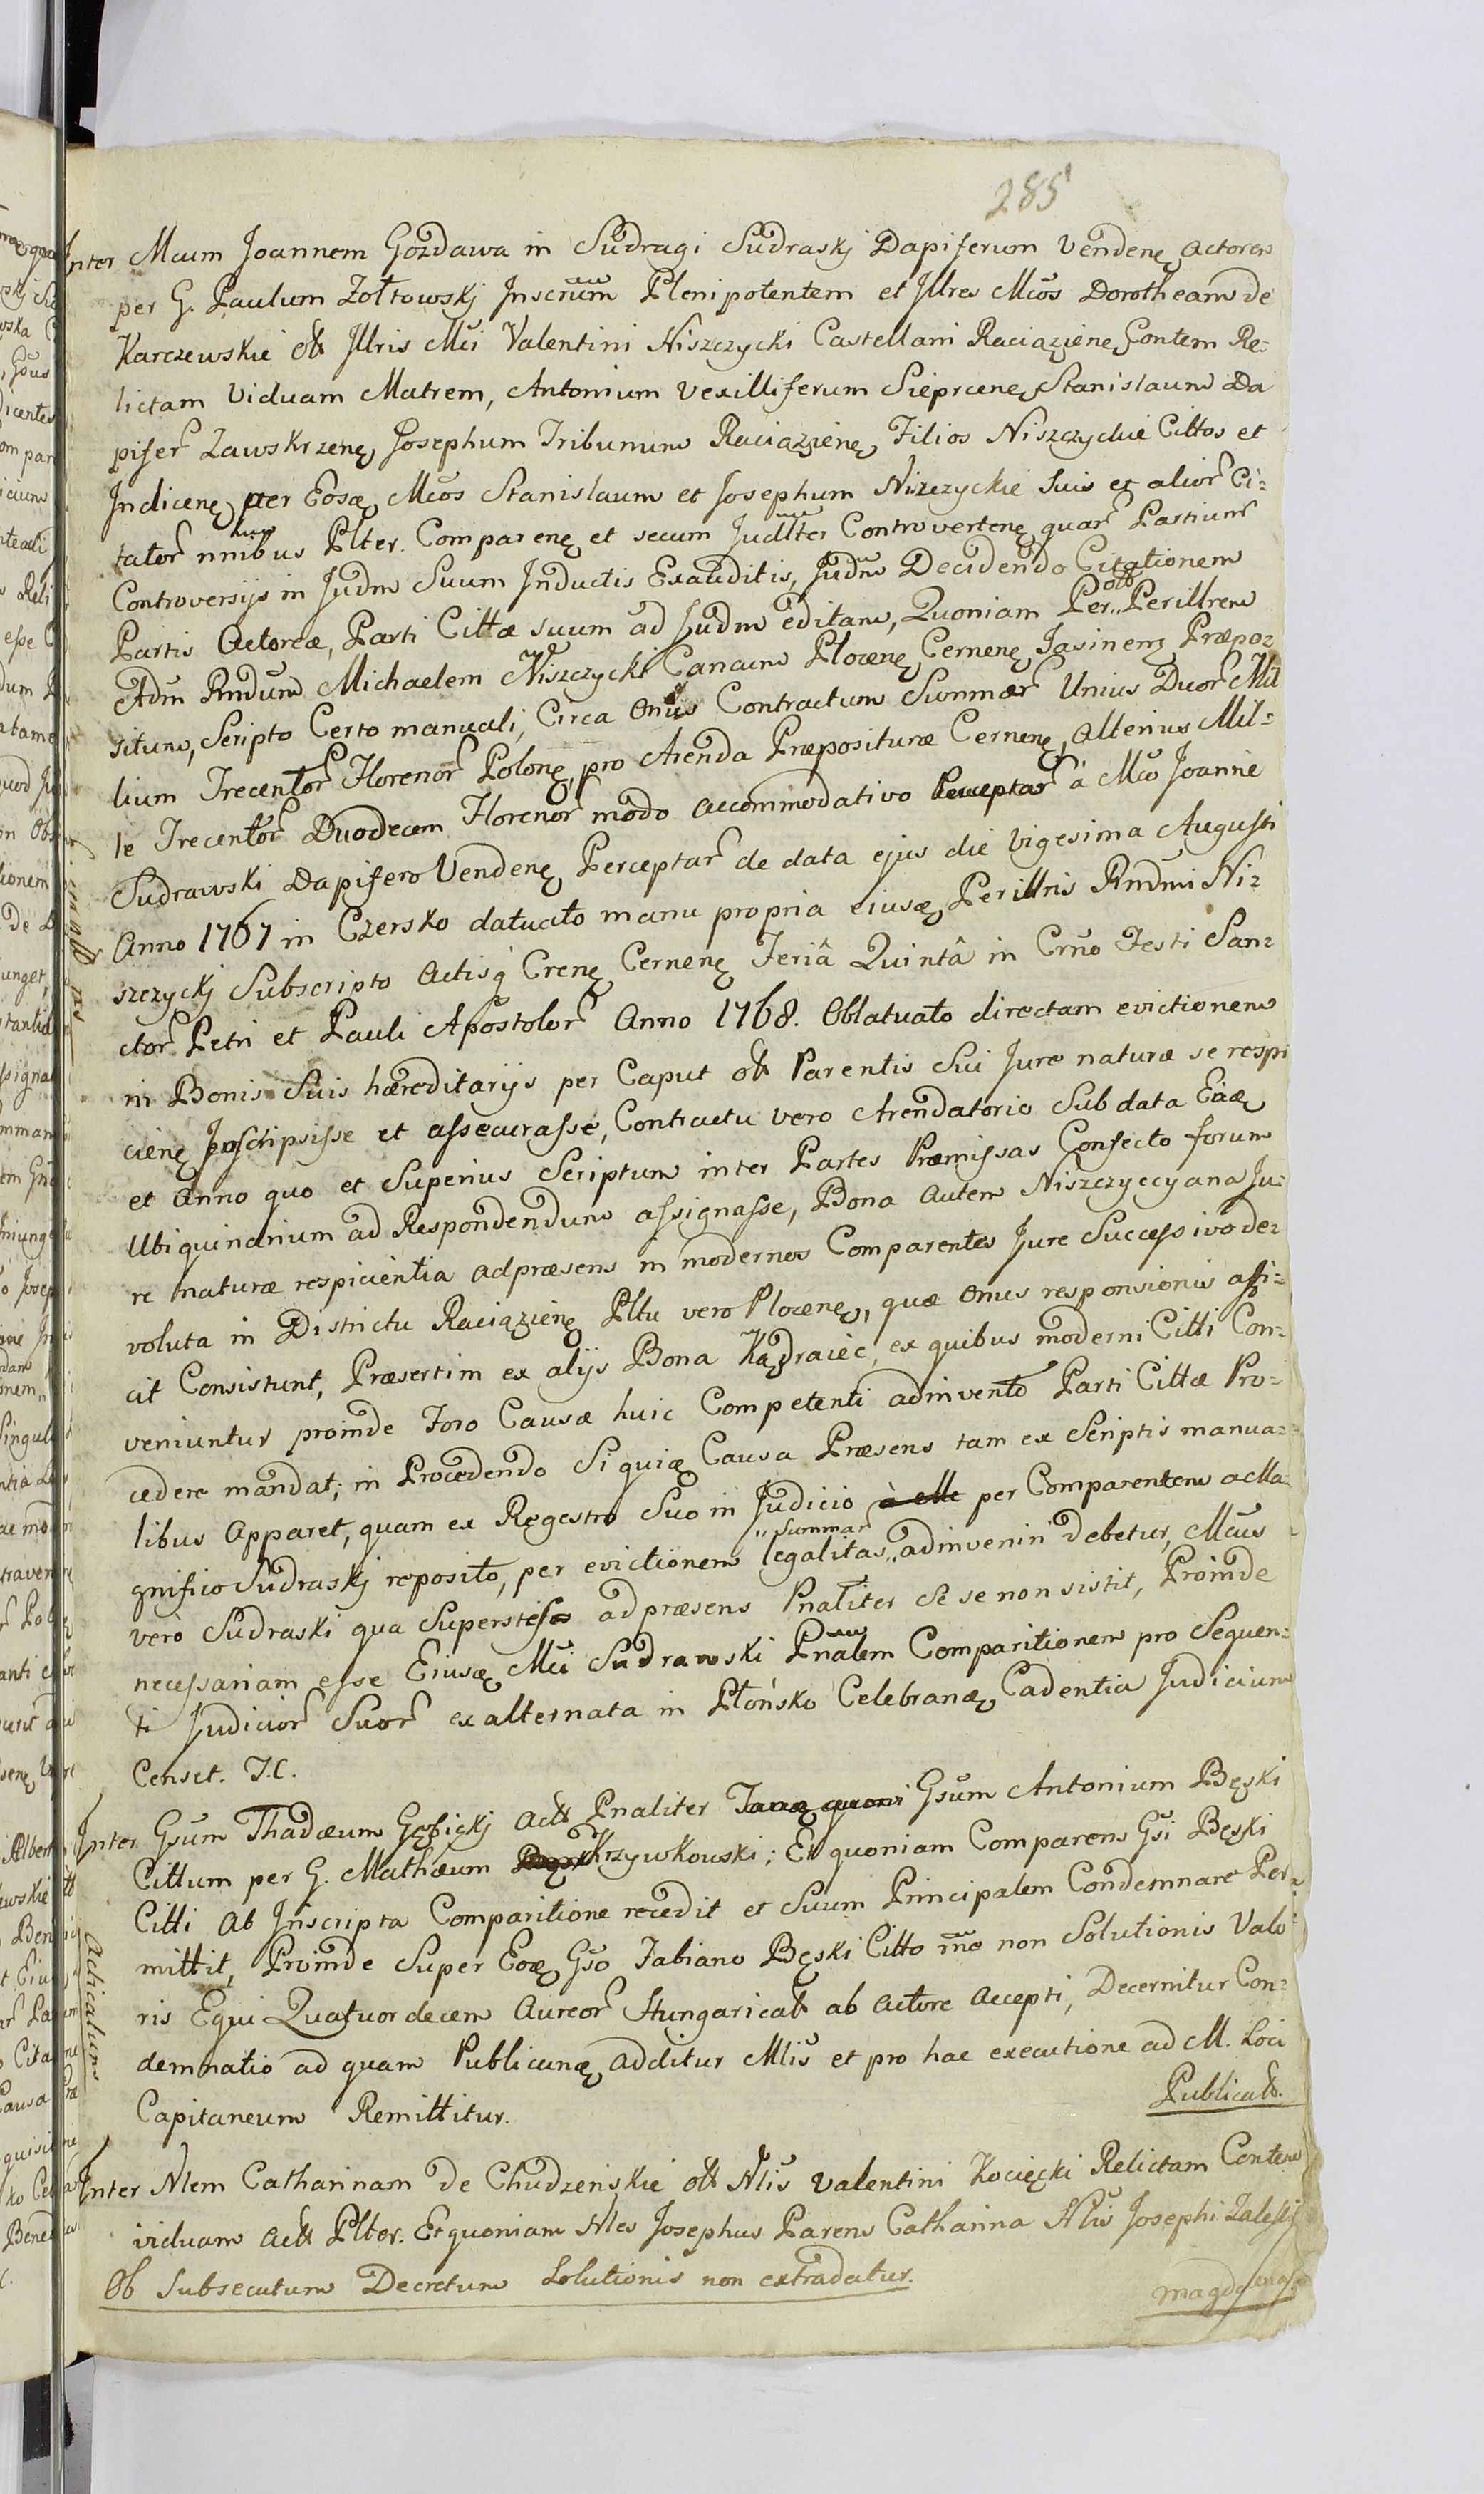 285
Inter Mcum Joannem Gozdawa in Sudragi Sudraskj Dapiferum Vendenę Actorem
per G. Paulum Zołtowskj Inscrūm Plenipotentem et Jllres Mcōs Dorotheam de
Karczewskie ołł Jllris Mci Valentini Niszczycki Castellani Raciązienę Contem Re=
lictam Viduam Matrem, Antonium Vexilliferum Sieprcenę, Stanislaum Da
pifer Zawskrzenę, Josephum Tribunum Raciązienę, Filios Niszczyckie Cittos et
Indicenę per Eosę Mcōs Stanislaum et Josephum Niszczyckie Suis et alior Ci=
tator nnibus Plter. Comparenę et secum Judllter Controvertenę quar Partium
Controversijs in Judm Suum Inductis Exauditis, Judm Decidendo Citationem
Partis Actoreæ, Parti Cittæ suum ad Judm editam, Quoniam Per,, olim Perillrem
Adm Rndum Michaelem Niszczycki Canacum Plocenę Cernenę Jasinenę Præpoz
situm, Scripto Certo manuali, Circa Onus Contractum Summar Unius Duor Mil
lium Trecentor Florenor Polonę, pro Arenda Præposituræ Cernenę, Alterius Mil=
le Trecentor Duodecem Florenor modo accommodativo Perceptar à Mco Joanne
Sudrawski Dapifero Vendenę Perceptar de data ejus die Vigesima Augusti
Anno 1767 in Czersko datuato manu propria eiusę Perillris Rndmi Niz
szczyckj Subscripto Actisq Crenę Cernenę Feriâ Quintâ in Crño Festi Sanz
ctor Petri et Pauli Apostolor Anno 1768. Oblatuato directam evictionem
in Bonis Suis hæreditarijs per Caput ołł Parentis Sui Jure naturæ se respi
cienę Inscripsisse et assecurasse, Contractu vero Arendatorio Sub data Eâę
et Anno quo et Superius Scriptum inter Partes Præmissas Confecto forum
Ubiquinarium ad Respondendum assignasse, Bona autem Niszczyccyana Ju=
re naturæ respicientia adpræsens in modernos Comparentes Jure Successivo dez
voluta in Districtu Raciązienę Pltu vero Plocenę, quæ Onus responsionis affi=
cit Consistunt, Præsertim ex alijs Bona Kądraiec, ex quibus moderni Citti Con=
veniuntur proinde Foro Causæ huic Competenti adinvento Parti Cittæ Pro=
cedere mandat; in Procedendo Si quię Causa Præsens tam ex Scriptis manua=
libus Apparet, quam ex Regestro Suo in Judicio per Comparentem a Ma=
gnifico Sudraskj reposito, per evictionem legalitas ,, Summar ,, adinveniri debetur, Mcus
verò Sudraski qua Superstes adpræsens Pnaliter Se se non sistit, Proinde
necessariam esse Eiusę Mci Sudrawski Pnalem Comparitionem pro Sequen=
ti Judicior Suor ex alternata in Płońsko Celebranę Cadentia Judicium
Censet. J.C.
Inter Gsum Thadæum Gębickj Actt Pnaliter Gsum Antonium Bęski
Cittum per G. Mathæum Krzywkowski; Et quoniam Comparens Gsi Bęski
Citti ab Inscripta Comparitione recedit et Suum Principalem Condemnare Per=
mittit, Proinde Super Eoę Gso Fabiano Bęski Citto rño non Solutionis Valo
ris Equi Quatuordecem Aureor Hungaricalt ab Actore Accepti, Decernitur Con=
demnatio ad quam Publicanę additur Mlis et pro hac executione ad M. Loci
Capitaneum Remittitur.
Publicatt.
Inter Nlem Catharinam de Chudzeńskie ołł Nlis Valentini Kocięcki Relictam Contem
viduam Actt Plter. Et quoniam Nles Josephus Parens Catharina Nlis Josephi Zalesskj
Ob Subsecutum Decretum Solutionis non extradatur.
magdalena
Adicatum